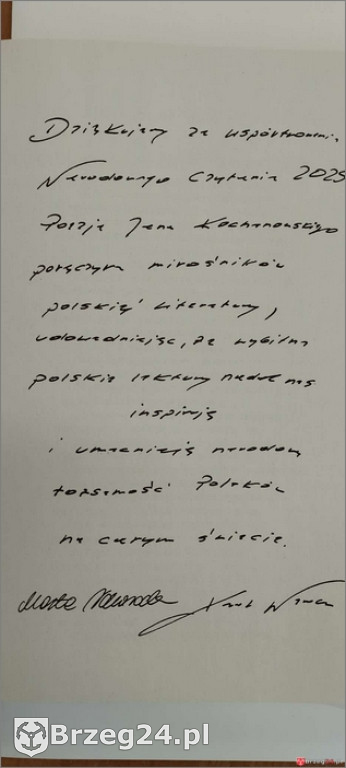 Dziękujemy za współtworzenie
Narodowego Czytania 2025
Poezja Jana Kochanowskiego
połączyła miłośników
polskiej literatury,
udowadniając, że wybitne
polskie lektury nadal nas
inspirują
i umacniają narodową
tożsamość Polaków
na całym świecie.
Marta Nawrocka
Brzeg24.pl